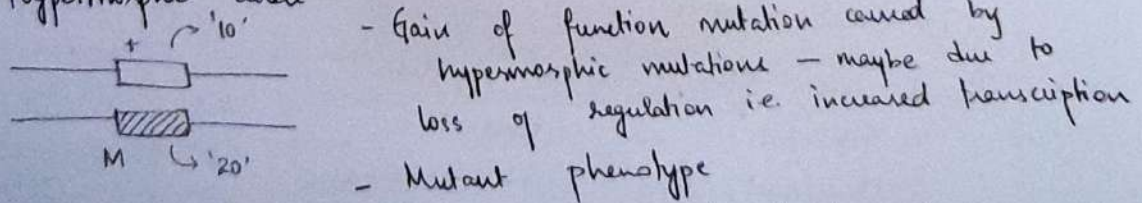 + '10'
M '20'
- Gain of function mutation caused by
hypermorphic mutations - maybe due to
loss of regulation i.e. increased transcription
- Mutant phenotype